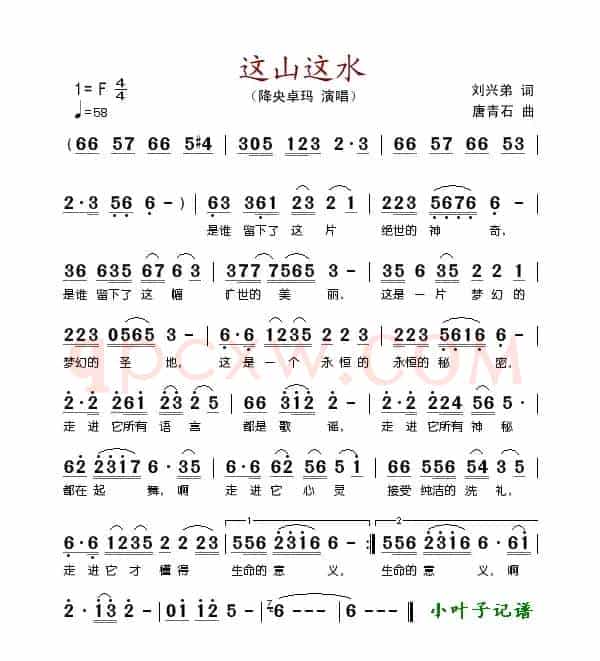 这山这水
（降央卓玛 演唱）
1=F 4/4
♩=58
刘兴弟 词
唐青石 曲
( 66 57 66 5#4 | 305 123 2·3 | 66 57 66 53 |
2·3 56 6 - ) | 63 361 23 21 | 223 5676 6 - |
是谁 留下了 这 片 绝世的 神 奇，
36 635 67 63 | 377 7565 3 - | 35 6 35 2 2 1 |
是谁 留下了 这 幅 旷世的 美 丽。 这是 一 片 梦幻 的
223 0565 3 - | 6·6 1235 2 2 3 | 223 5616 6 - |
梦幻的 圣 地。 这 是 一 个 永 恒 的 永恒的 秘 密。
2·2 261 23 2 5 | 66 312 2 - | 2·2 224 56 5 |
走 进 它所有 语 言 都是 歌 谣， 走 进 它所有 神秘
62 2317 6·35 | 6·6 62 56 5 | 66 556 54 35 |
都在 起 舞，啊 走 进 它 心 灵 接受 纯洁的 洗 礼，
6·6 1235 2 23 | 1 556 2316 6 - :| 2 556 2316 61 |
走 进 它 才 懂 得 生命的 意 义， 生命的 意 义，啊
2· 13 2 - | 01 12 25 | 6 - - - | 6 - - ‖
小叶子记谱
qpcxw.COM